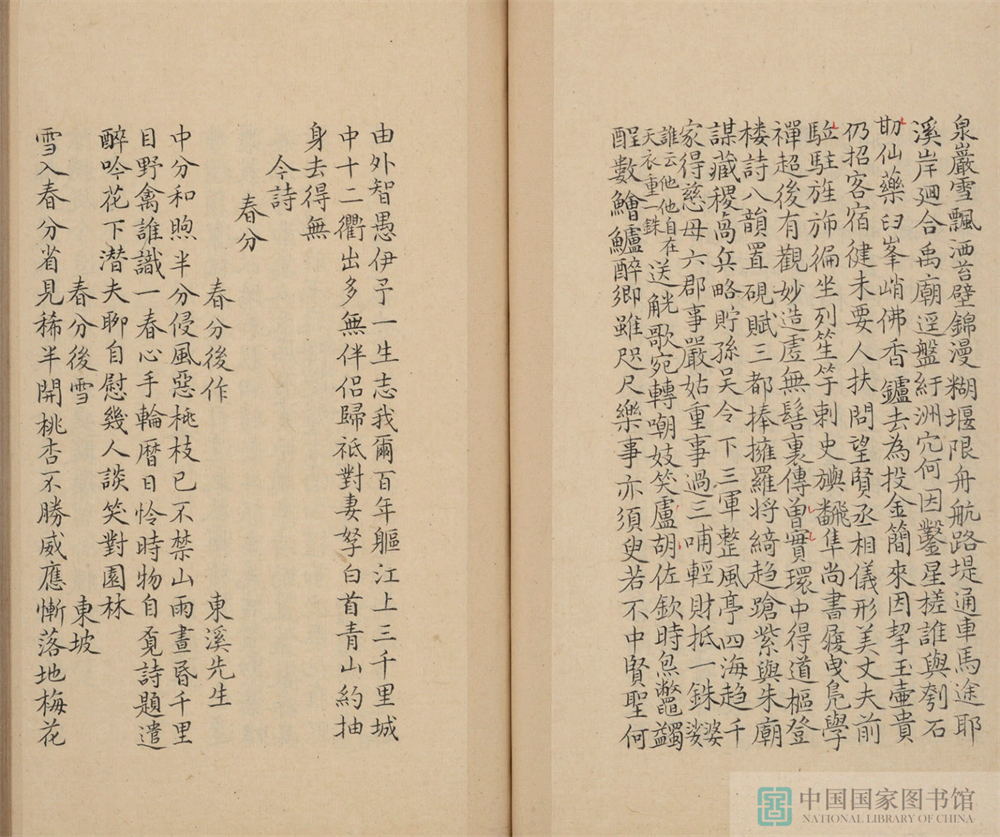 泉巖雪飄洒苔壁錦漫糊堰限舟航路堤通車馬途耶
溪岸廻合禹廟逕盤紆洲穴何因鑿星槎誰與刳石
仙藥臼峯峭佛香鑪去為投金簡來因挈玉壺貴
仍招客宿健未要人扶問望賢丞相儀形美丈夫前
駐旌斾徧坐列笙竽刺史旟翻隼尚書履曳鳧學
禪超後有觀妙造虛無髻裏傳曾寶環中得道樞登
樓詩八韻置硯賦三都捧擁羅將綺趨蹌紫與朱廟
謀藏稷卨兵略貯孫吳令下三軍整風亭四海趨千
家得慈母六郡事嚴姑重事過三哺輕財抵一銖婆娑
誰云他他自在
天衣重一銖
送觥歌宛轉嘲妓笑盧胡佐飲時炰鼈蠲
酲數鱠鱸醉卿雖咫尺樂事亦須臾若不中賢聖何
由外智愚伊予一生志我爾百年軀江上三千里城
中十二衢出多無伴侶歸祗對妻孥白首青山約抽
身去得無
今詩
春分
春分後作 東溪先生
中分和煦半分侵風惡桃枝已不禁山雨晝昏千里
目野禽誰識一春心手輪曆日怜時物自覔詩題遣
醉吟花下潜夫聊自慰幾人談笑對園林
春分後雪 東坡
雪入春分省見稀半開桃杏不勝威應慚落地梅花
中国国家图书馆
NATIONAL LIBRARY OF CHINA